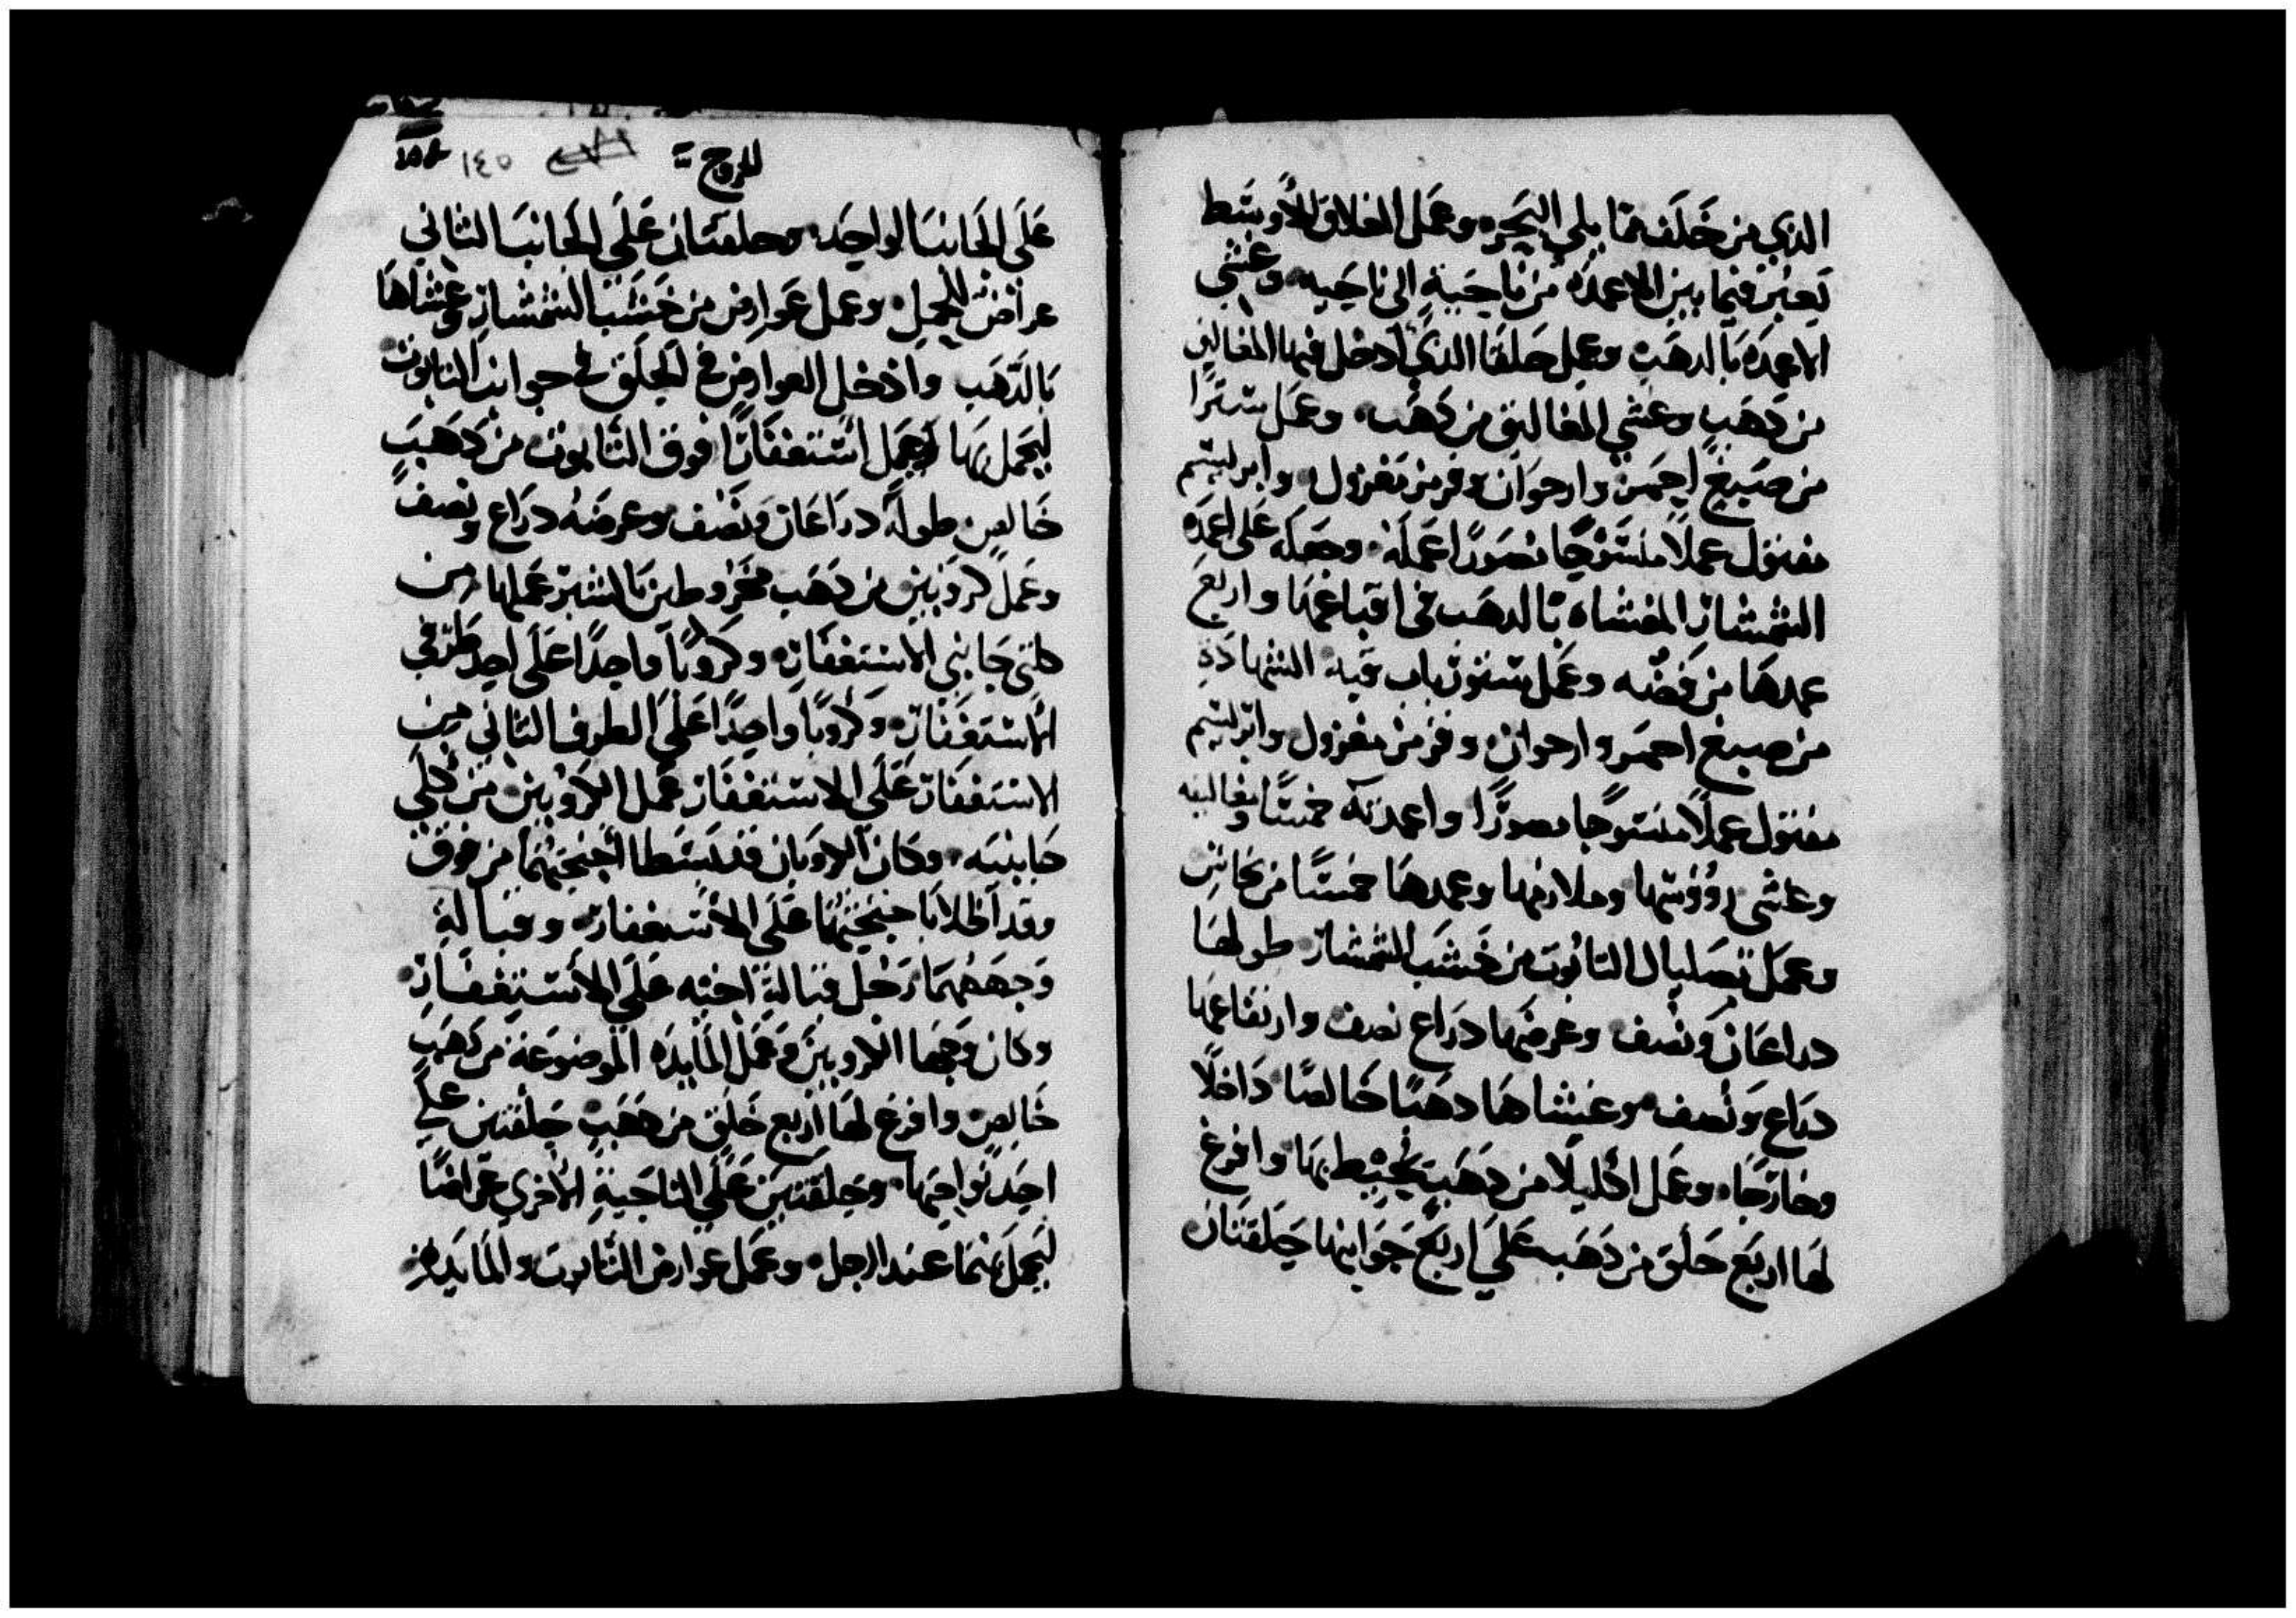 الذي من خَلَف ممّا يلي البَحِره وعَمل الغلاق للأوسَط
تَعبُرْ فيما بين الاعمدَه من ناحَيةٍ الى ناحَيه وغشي
الاعمدَه بَالدهَبِ وعمل حَلقا الذي أدخل فيها المغاليق
من دَهَبٍ وغشي المغاليق من دَهَب وعَمل ستَرًا
من صَبيغ احمَرْ وارجوَان وقرمز مَغزول وابريسَم
مفتول عملًا منسَوْجًا مُصَورًا عَملَهْ وجعَله عَلى اعمدَه
الشمشار المغشاه بَالدهَب في اقباعها واربَع
عمدهَا من فضه وعَمل ستَوْر باب قبه الشهادَةِ
من صبيغ احمَر وارجوان وقرمز مغزول وابريسَم
مفتول عملًا منسَوجًا مصورًا واعمدَته خمسًا ومغاليقه
وغشى رؤُوسَها وملازمها وعمدهَا خمسًا من نحَاسٍ
وعمَل بَصَليال التابُوت من خَشبَ الشمشار طولهَا
دراعَان وَنصف وعرضهَا دراع نصف وارتفاعها
درَاع وَنصف وغشاهَا دهَبًا خَالصًا دَاخلًا
وخارَجًا وعَمل اكليلًا من دَهَب يُحيْط بهَا وافرغ
لهَا اربَع حَلَق من دَهَب عَلَي اربَع جَوانبهَا حَلقتَان
للروج
١٤٥
عَلَي الجَانبَ الواحِد وحلقتَان عَلَي الجَانبَ الثاني
عراض للحمل وعمل عَوارض من خَشَبَ الشمشار وغشاهَا
بَالدّهَب وادخل العوارض في الحِلَق في جوانب التابوت
ليَحمل بهَا وَعَمل اسَتغفَارًا فوق التَابوت من دَهَبَ
خَالص طولهْ درَاعَان وَنصْف وعرضهُ درَاع ونصف
وعَملَ كروَبين من دَهَب مخرُوطين بَالشبر عَملها من
كلتى جَانبي الاسَتغفَار وكروبًا واحدًا عَلَى احد طَرَفي
الأسَتغفَار وكروبًا واحدًا عَلَى الطرف الثاني من
الاسَتغفَار عَلَى الاسَتغفَار عَمل الكروْبين من كلي
جَانبيه وكان الكروبَان قد بسَطا أجنحتهُما من فوق
وقد أظلا بَاجنحتهُمَا عَلَى الاسَتغفار وقبالة
وَجههُمَا رَجل قبالةِ اخيه عَلَى الأسَتغفَارِ
وكان وَجها الكروبين وَعَمل المَايدَه الموضوعَة من دَهَبٍ
خَالص وافرغ لهَا اربَع حَلَق من دهَب حَلقتَين علي
احِد نَواحيهَا وحَلقتَين عَلَي الناحَيةِ الأخري عَراضًا
ليَحمل بهمَا عند الرجل وعَمَل عوارض التابوت والمَايَده من